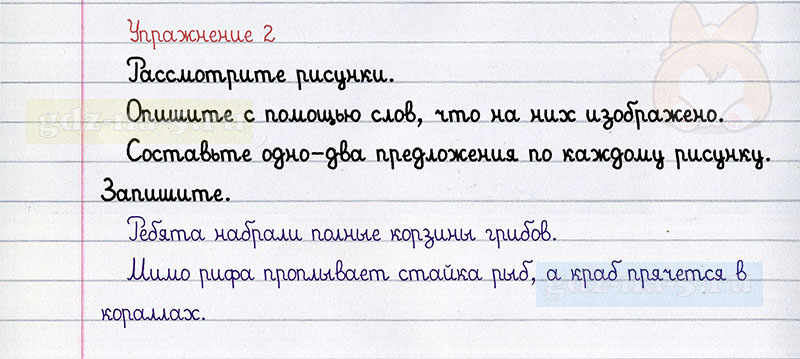 Упражнение 2
Рассмотрите рисунки.
Опишите с помощью слов, что на них изображено.
Составьте одно-два предложения по каждому рисунку.
Запишите.
Ребята набрали полные корзины грибов.
Мимо рифа проплывает стайка рыб, а краб прячется в
кораллах.